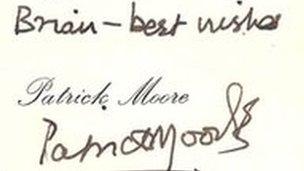 Brian - best wishes
Patrick Moore
Patrick Moore